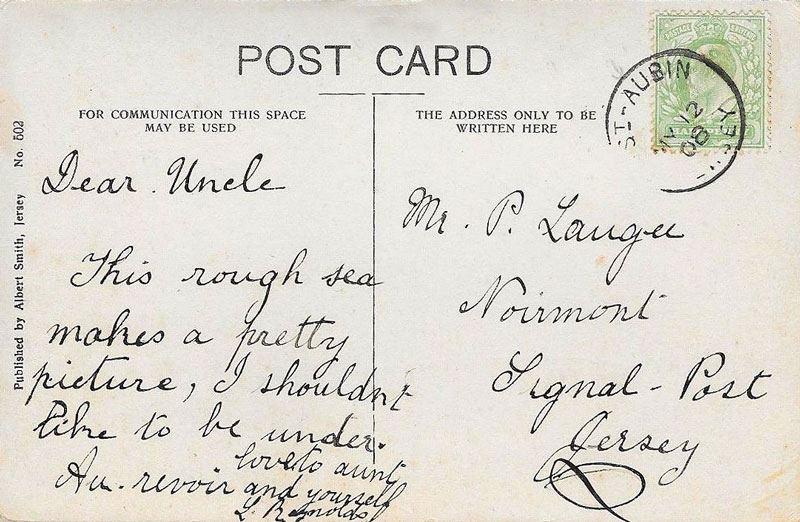 POST CARD
FOR COMMUNICATION THIS SPACE
MAY BE USED
THE ADDRESS ONLY TO BE
WRITTEN HERE
ST-AUBIN
MY 12
08
JERSEY
Published by Albert Smith, Jersey No. 502
Dear Uncle
This rough sea
makes a pretty
picture, I shouldn't
like to be under.
Au-revoir
love to aunt
and yourself
L. Reynolds
Mr. P. Laugee
Noirmont
Signal-Post
Jersey